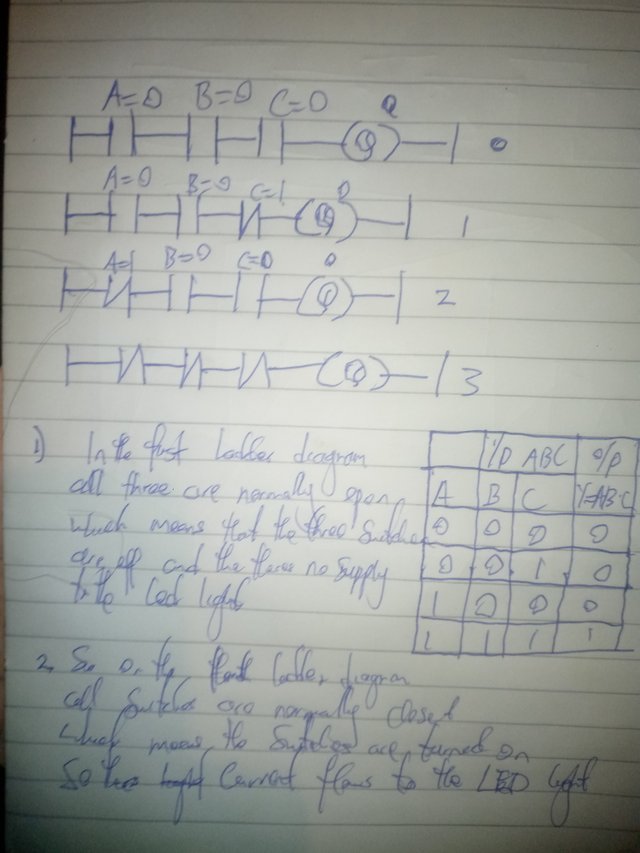 A=0 B=0 C=0 Q
(Q) 0
A=0 B=0 C=1 0
(Q) 1
A=1 B=0 C=0 0
(Q) 2
(Q) 3
1) In the first Ladder diagram
all three are normally open
which means that the three Switches
are off and the there no supply
to the Led light
I/P ABC O/P
A B C Y=ABC
0 0 0 0
0 0 1 0
1 0 0 0
1 1 1 1
2. So on the ladder diagram
all Switches are normally closed
which means the Switches are turned on
So Current flows to the LED light